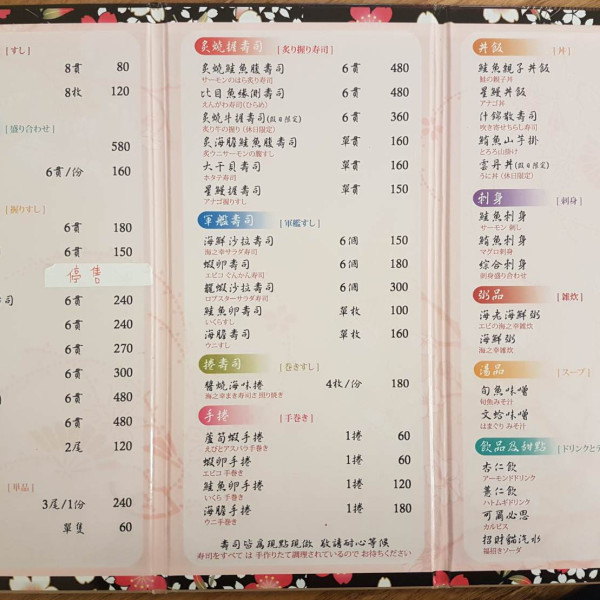 [すし]
8貫 80
8枚 120
[盛り合わせ]
580
6貫/份 160
[握りすし]
6貫 180
6貫 150
停售
司 6貫 240
6貫 240
6貫 270
6貫 300
6貫 480
6貫 480
2尾 120
[單品]
3尾/1份 240
單隻 60
炙燒握壽司 [炙り握り寿司]
炙燒鮭魚腹壽司 6貫 480
サーモンのはら炙り寿司
比目魚緣側壽司 6貫 480
えんがわ寿司(ひらめ)
炙燒牛握壽司(假日限定) 6貫 360
炙り牛の握り(休日限定)
炙海膽鮭魚腹壽司 單貫 160
炙ウニサーモンの腹すし
大干貝壽司 單貫 150
ホタテ寿司
星鰻握壽司 單貫 150
アナゴ握りすし
軍艦壽司 [軍艦すし]
海鮮沙拉壽司 6個 150
海之幸サラダ寿司
蝦卵壽司 6個 180
エビコ ぐんかん寿司
龍蝦沙拉壽司 6個 300
ロブスターサラダ寿司
鮭魚卵壽司 單枚 100
いくらすし
海膽壽司 單枚 160
ウニすし
捲壽司 [巻きすし]
醬燒海味捲 4枚/份 180
海之幸まき寿司さ照り焼き
手捲 [手巻き]
蘆筍蝦手捲 1捲 60
えびとアスパラ手巻き
蝦卵手捲 1捲 60
エビコ 手巻き
鮭魚卵手捲 1捲 120
いくら 手巻き
海膽手捲 1捲 180
ウニ手巻き
壽司皆為現點現做 敬請耐心等候
寿司をすべて は 手作りたて調理されているので お待ちください
丼飯 [丼]
鮭魚親子丼飯
鮭の親子丼
星鰻丼飯
アナゴ丼
什錦散壽司
吹き寄せちらし寿司
鮪魚山芋掛
とろろ山掛け
雲丹丼(假日限定)
うに丼(休日限定)
刺身 [刺身]
鮭魚刺身
サーモン 刺し
鮪魚刺身
マグロ刺身
綜合刺身
刺身盛り合わせ
粥品 [雑炊]
海老海鮮粥
エビの海之幸雑炊
海鮮粥
海之幸雑炊
湯品 [スープ]
旬魚味噌
旬魚みそ汁
文蛤味噌
はまぐり みそ汁
飲品及甜點 [ドリンクとデ
杏仁飲
アーモンドドリンク
薏仁飲
ハトムギドリンク
可爾必思
カルピス
招財貓汽水
福招きソーダ